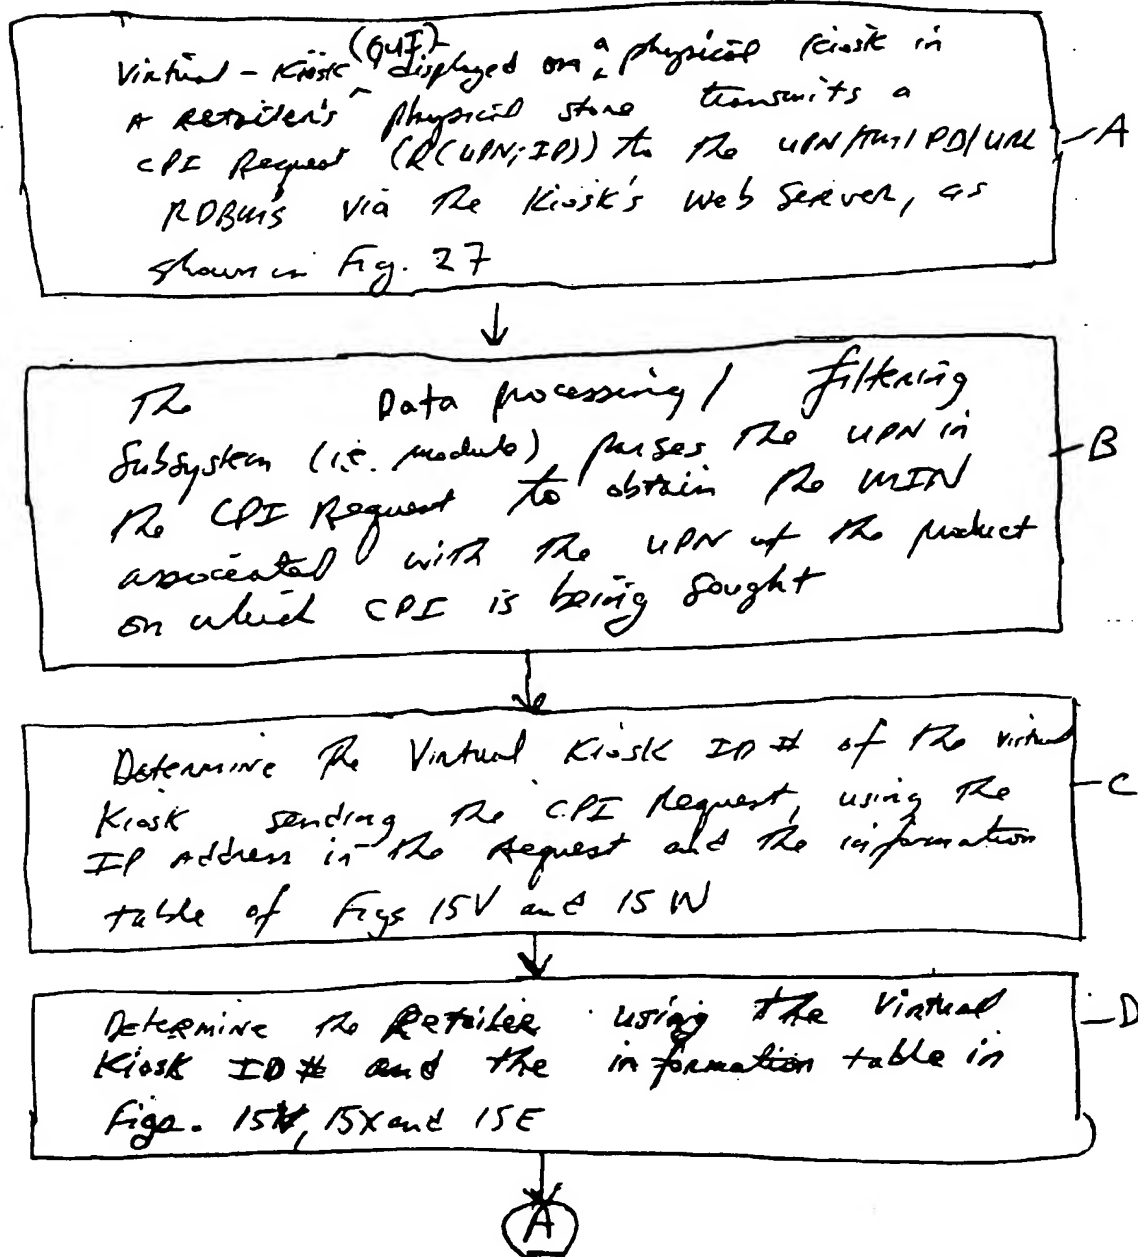 Virtual-Kiosk (GUI) displayed on a physical kiosk in
A Retailer's physical store transmits a
CPI Request (R(UPN;IP)) to the UPN/TM/PD/URL
RDBMS via the Kiosk's Web Server, as
shown in Fig. 27
A
The Data processing/ filtering
Subsystem (i.e. module) parses the UPN in
the CPI Request to obtain the MIN
associated with the UPN of the product
on which CPI is being sought
B
Determine the Virtual Kiosk ID # of the virtual
Kiosk sending the CPI Request, using the
IP Address in the Request and the information
table of Figs 15V and 15W
C
Determine the Retailer using the Virtual
Kiosk ID # and the information table in
Figs. 15X and 15E
D
A